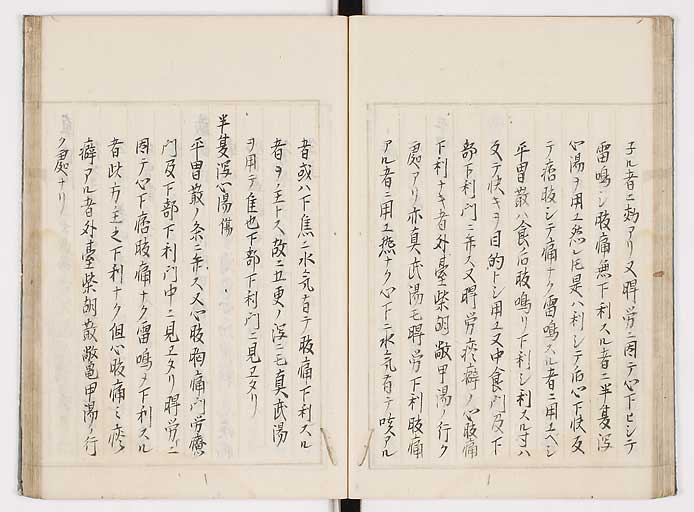 子ル者ニ効アリ又脾労ニ因テ心下ヒシテ
雷鳴シ腹痛無下利スル者ニ半夏瀉
心湯ヲ用ユ然レ𪜈是ハ利シテ后心下快反
テ痞腹シテ痛ナク雷鳴スル者ニ用ユベシ
平胃散ハ食后腹鳴リ下利シ利スル寸ハ
反テ快キヲ目的トシ用ユ又中食門及下
部下利門ニ弁ス又脾労痃癖ノ心腹痛
下利ナキ者外臺柴胡鼈甲湯ノ行ク
處アリ亦真武湯モ脾労下利腹痛
アル者ニ用ユ然ナク心下ニ水気有テ咳アル
者或ハ下焦ニ水気有テ腹痛下利スル
者ヲ主トス故ニ五更ノ瀉ニモ真武湯
ヲ用テ隹也下部下利門ニ見ヱタリ
半夏瀉心湯 傷
平胃散ノ条ニ弁ス又心腹胸痛門労療
門及下部下利門中ニ見ヱタリ脾労ニ
因テ心下痞腹痛ナク雷鳴メ下利スル
者此方主之下利ナク但心腹痛ミ痃
癖アル者外臺柴胡散鼈甲湯ノ行
ク處ナリ